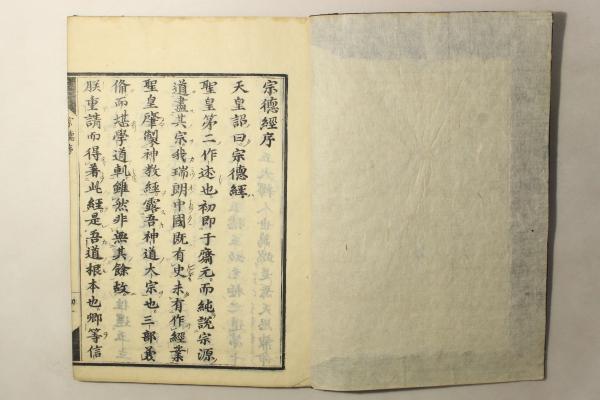 宗德經序
天皇詔曰宗德經
聖皇第二作述也初即于齋元而純說宗源
道盡其宗我瑞朗中國既有史未有作經業
聖皇肇製神教經露吾神道大宗也三部義
備而堪學道軌雖然非無其餘故
朕重請而得著此經是吾道根本也卿等信